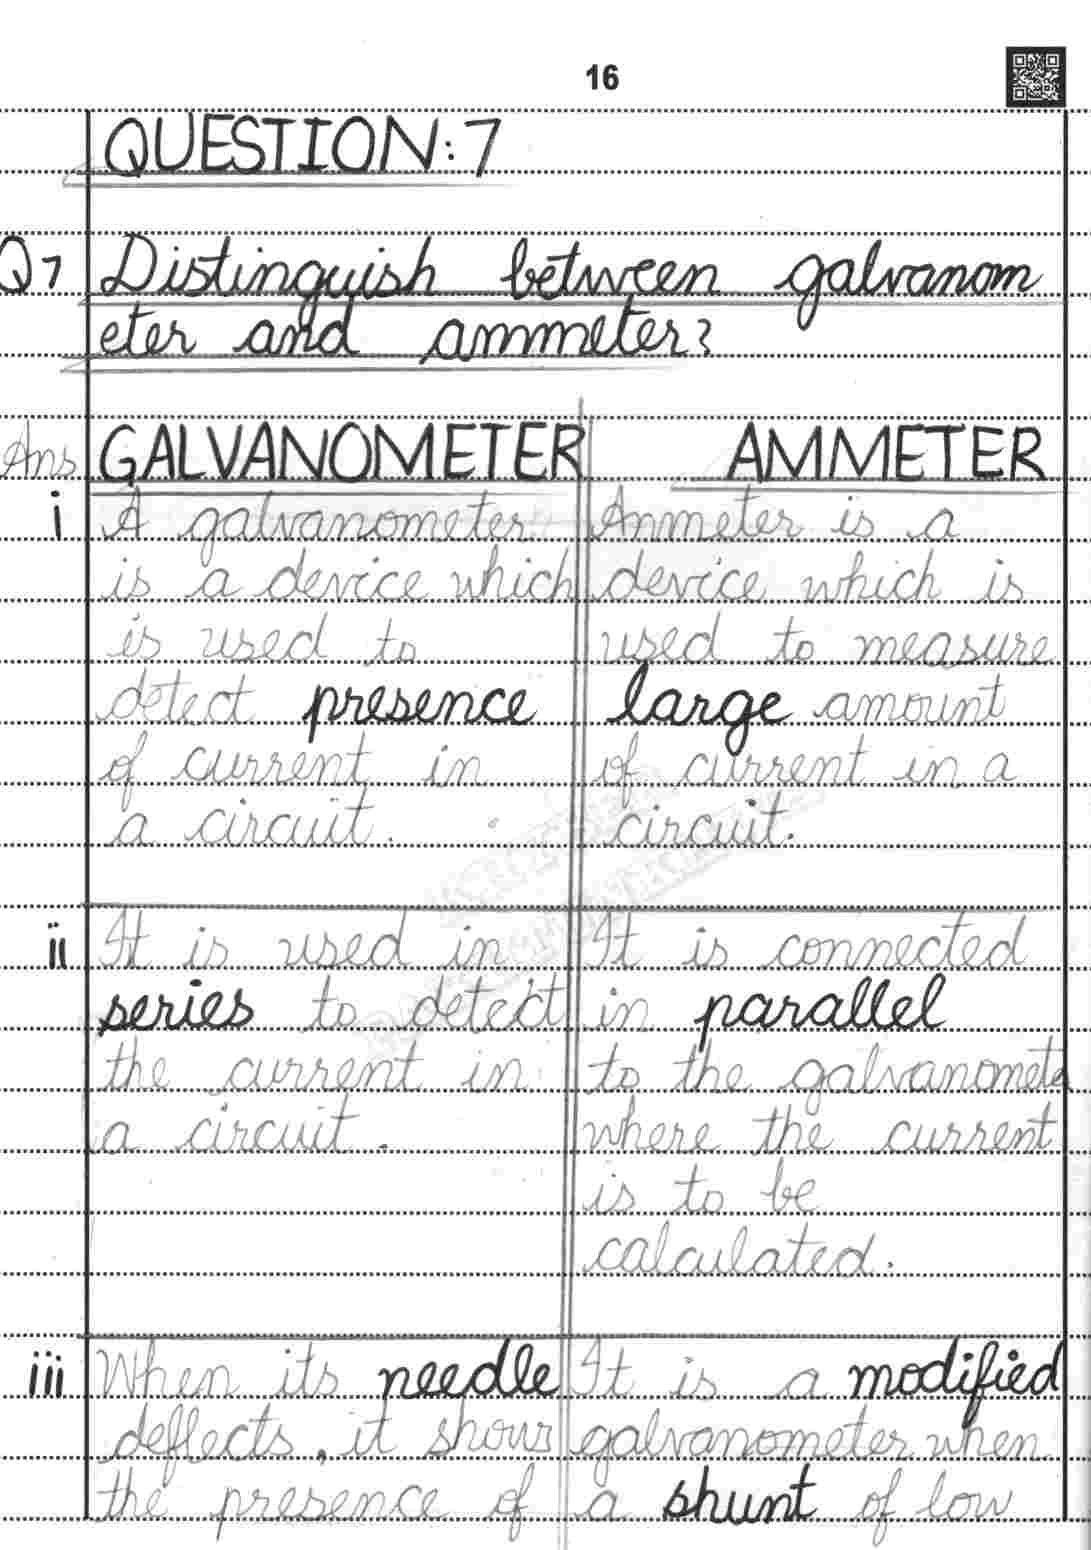 16
QUESTION: 7
Q7 Distinguish between galvanom
eter and ammeter?
Ans GALVANOMETER
i A galvanometer
is a device which
is used to
detect presence
of current in
a circuit.
AMMETER
Ammeter is a
device which is
used to measure
large amount
of current in a
circuit.
ii It is used in
series to detect
the current in
a circuit.
It is connected
in parallel
to the galvanomete
where the current
is to be
calculated.
iii When its needle
deflects, it shows
the presence of
It is a modified
galvanometer when
a shunt of low